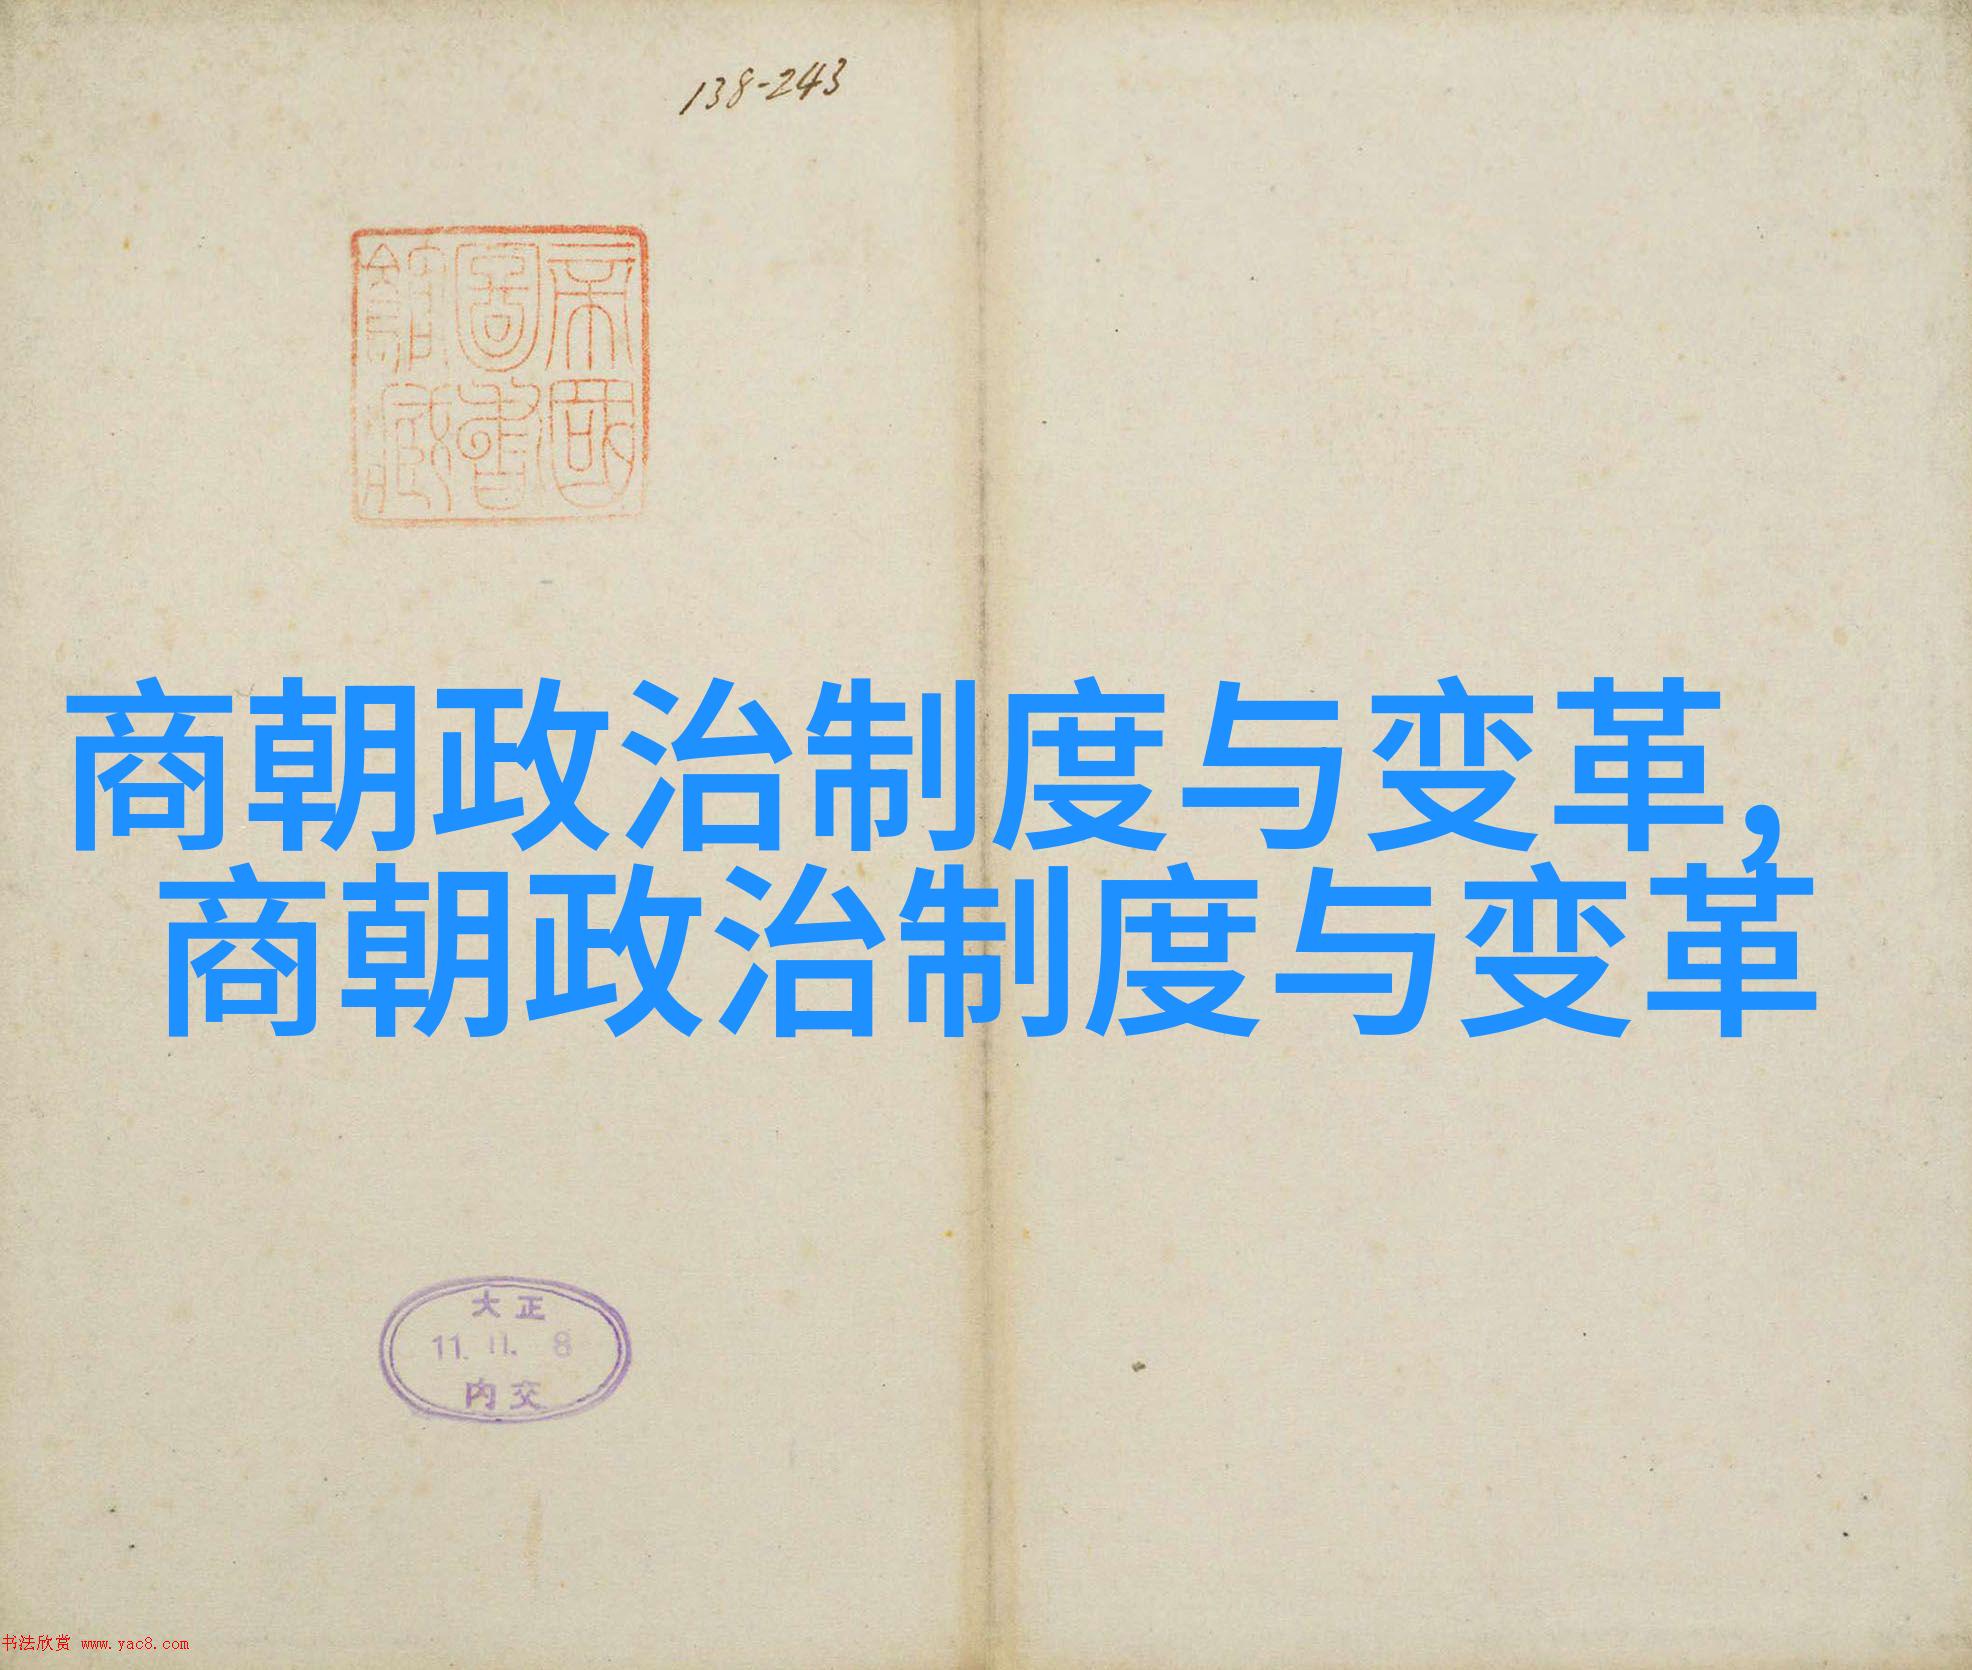 138-243
帝國
圖書
館藏
商朝政治制度与变革,
商朝政治制度与变革
大正
11. 11. 8
内交
书法欣赏 www.yac8.com